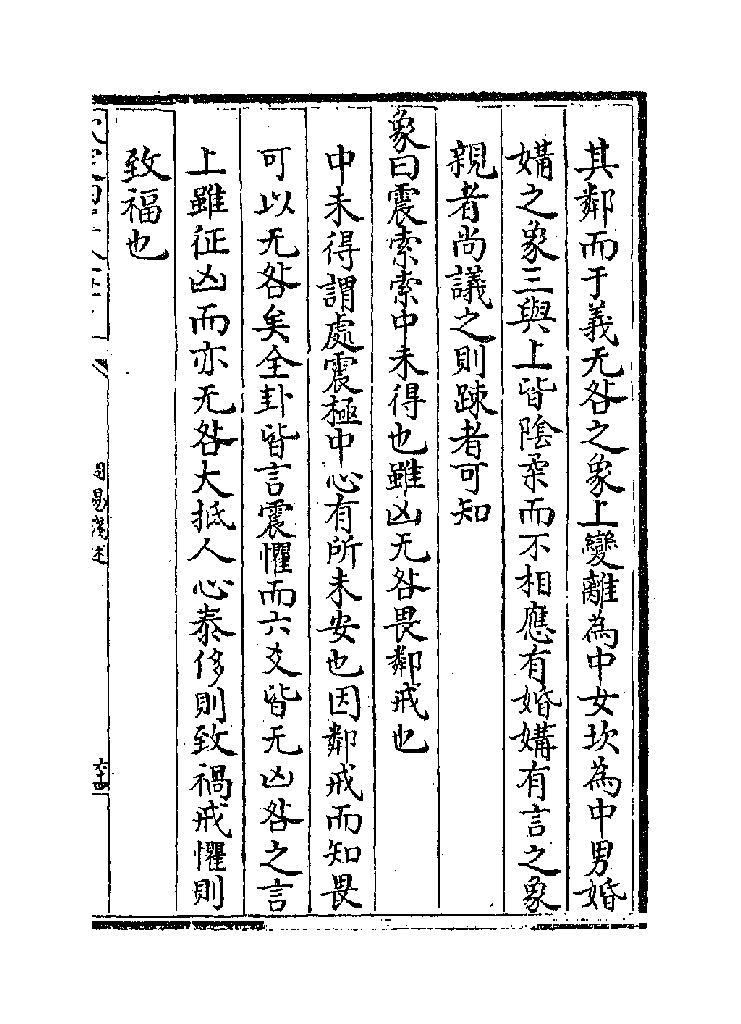 其鄰而于義无咎之象上變離為中女坎為中男婚
媾之象三與上皆陰柔而不相應有婚媾有言之象
親者尚議之則踈者可知
象曰震索索中未得也雖凶无咎畏鄰戒也
中未得謂處震極中心有所未安也因鄰戒而知畏
可以无咎矣全卦皆言震懼而六爻皆无凶咎之言
上雖征凶而亦无咎大抵人心泰侈則致禍戒懼則
致福也
周易淺述